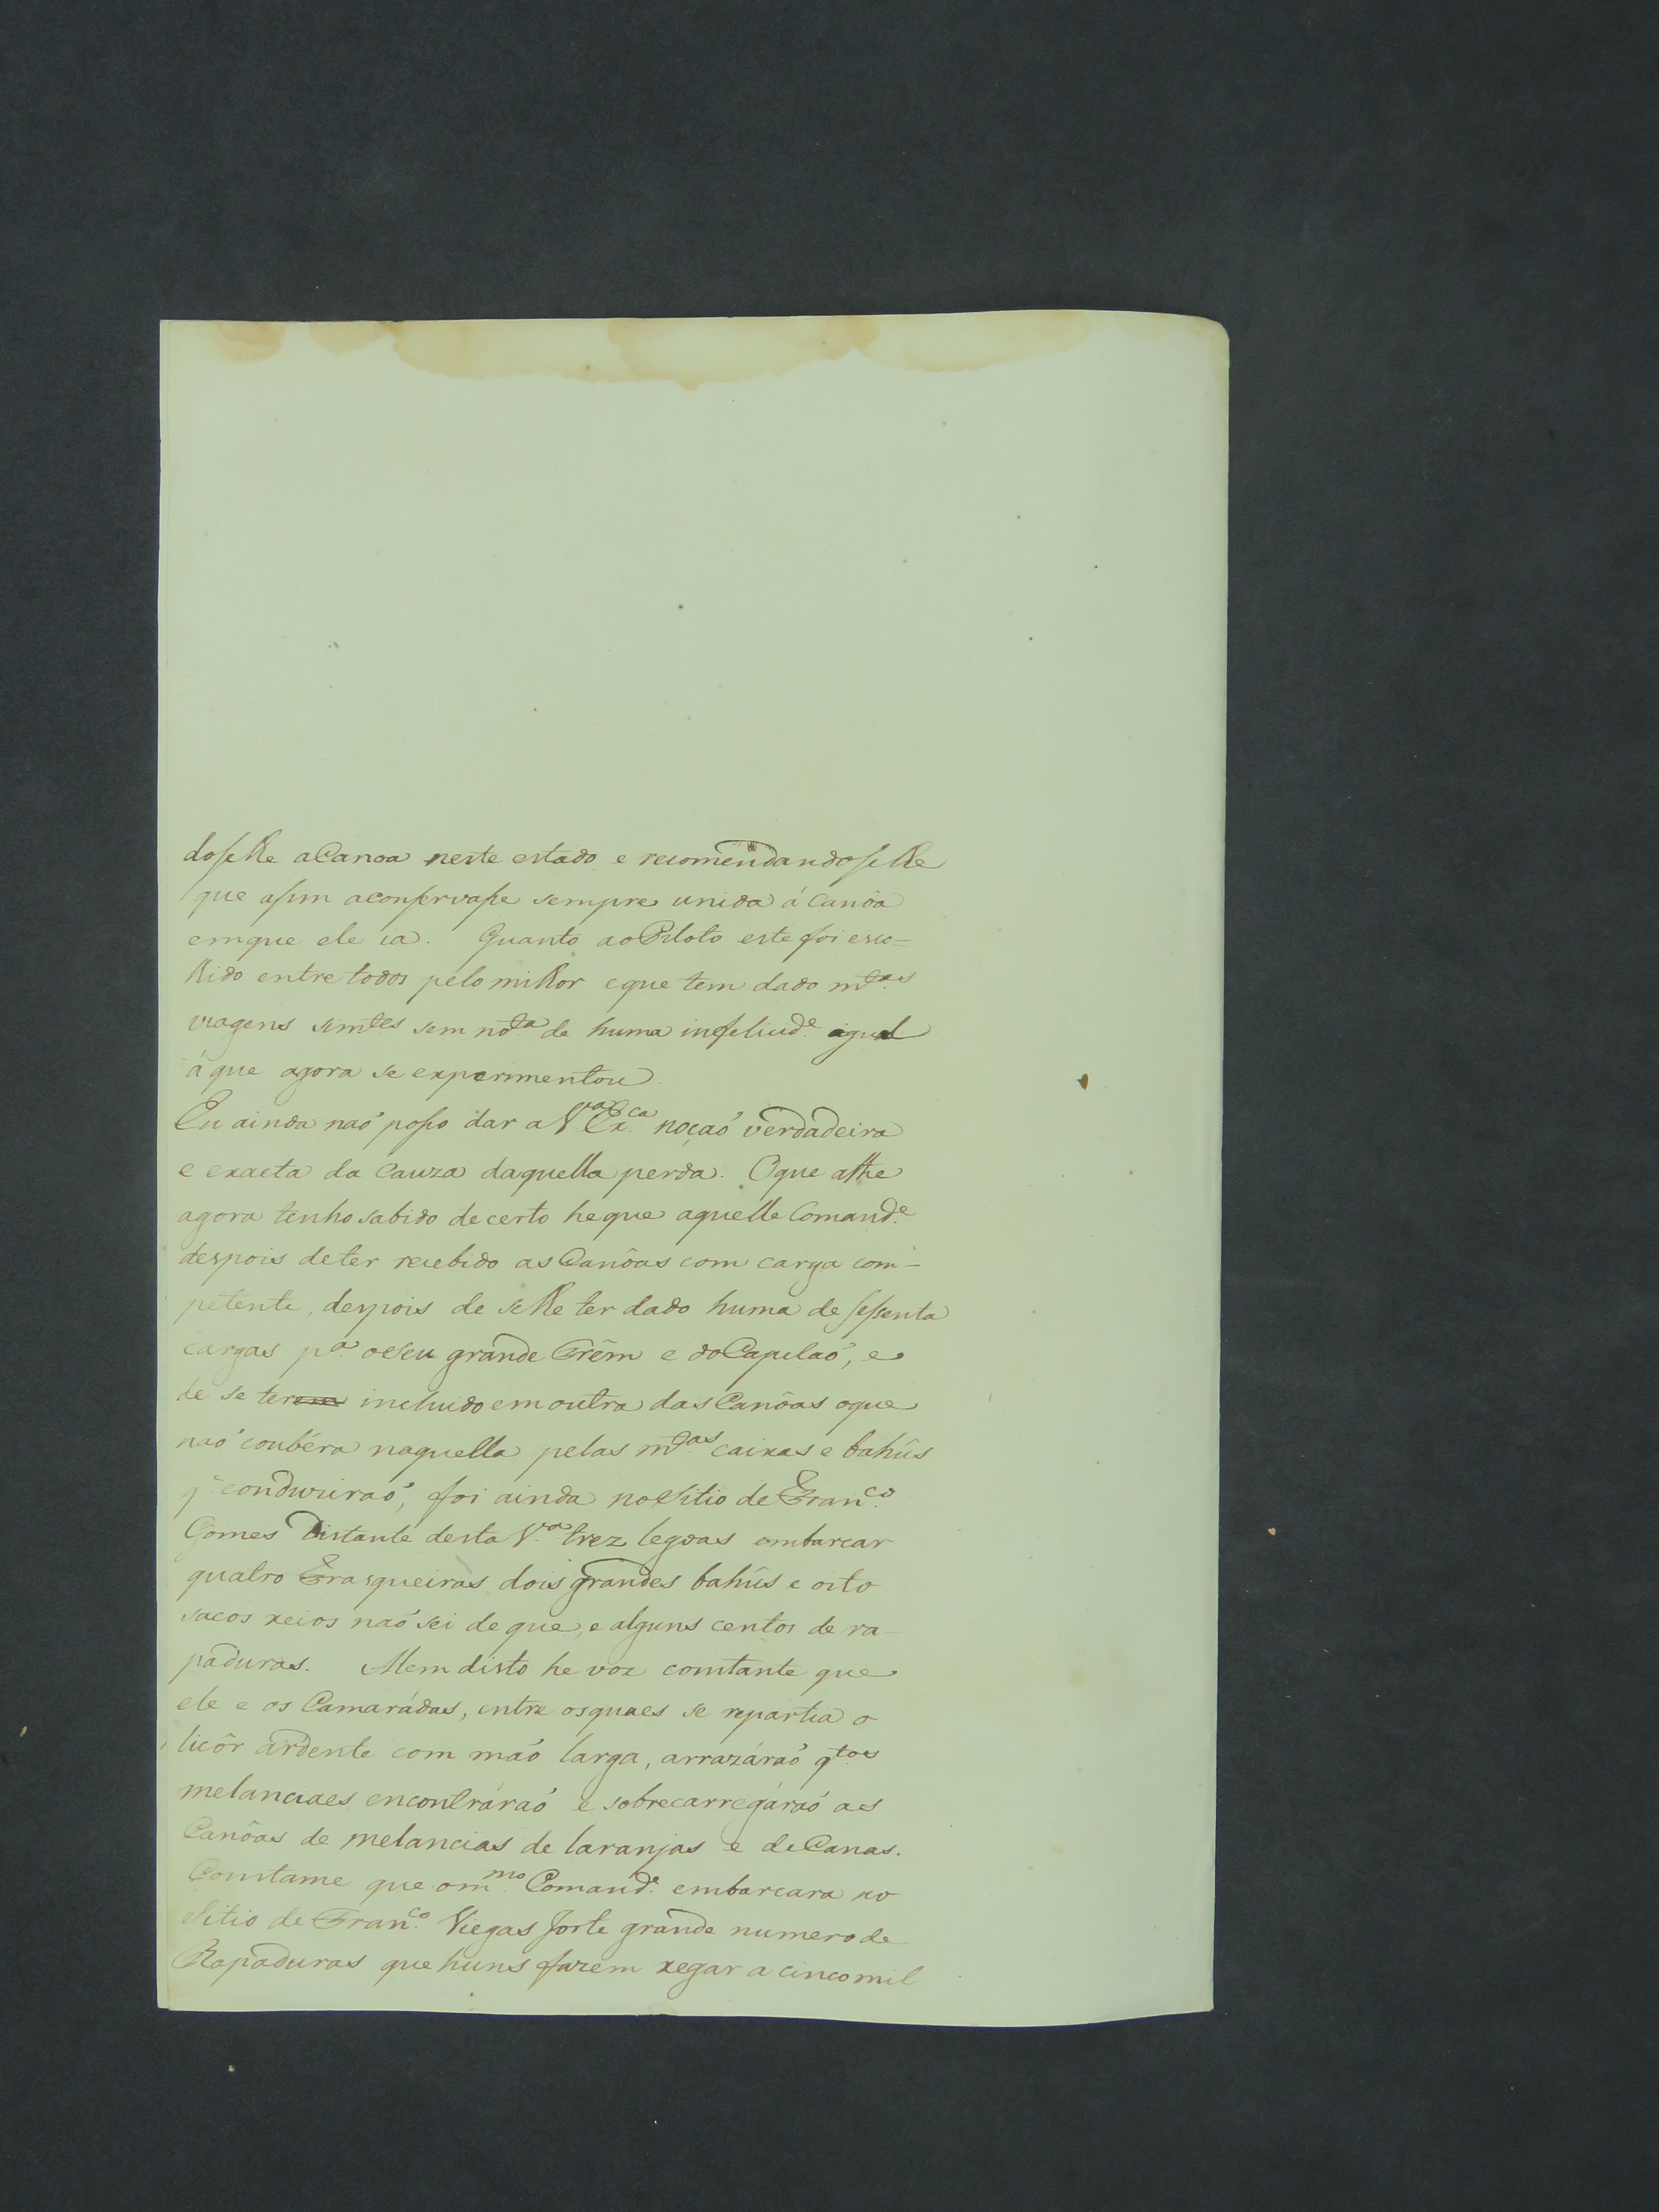 doselhe a Canoa neste estado e recomendandoselhe
que assim aconservasse sempre unida á Canôa
emque ele ia. Quanto ao Piloto este foi esco=
lhido entre todos pelo milhor eque tem dado m.tas
viagens sim.tes sem not.a de huma infelicid.e igual
á que agora se experimentou.
Eu ainda naó posso dar a V.a Ex.ca noçaó verdadeira
e exacta da Cauza daquella perda. Oque athe
agora tenho sabido decerto heque aquelle Comand.e
despois deter recebido as Canôas com carga com-
petente, despois de selhe ter dado huma de sessenta
cargas p.a oseu grande Trêm e do Capelaó, e
de se ter incluido em outra das Canôas oque
naó coubéra naquella pelas m.tas caixas e bahûs
q' conduziraó, foi ainda no Sitio de Fran.co
Gomes Distante desta V.a trez legoas embarcar
quatro Frasqueiras dois grandes bahûs e oito
sacos xeios naó sei de que, e alguns centos de ra-
paduras. Alem disto he voz constante que
ele e os Camarádas, entre osquaes se repartia o
licôr ardente com maó larga, arrazáraó q.tos
melanciaes encontráraó e sobrecarregáraó as
Canôas de melancias de laranjas e de Canas.
Constame que o m.mo Comand.e embarcara no
Sitio de Fran.co Viegas forte grande numero de
Rapaduras que huns fazem xegar a cinco mil